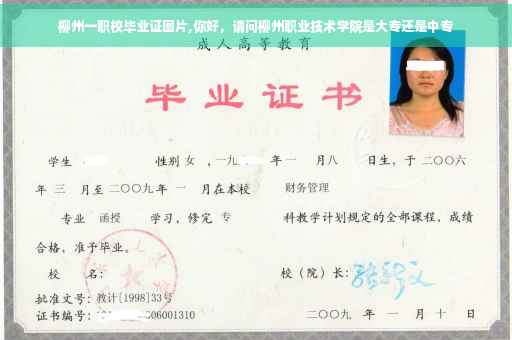 柳州一职校毕业证图片,你好，请问柳州职业技术学院是大专还是中专
成人高等教育
毕业证书
学生 性别 女 ，一九 年 一 月 八 日生，于 二〇〇六
年 三 月至 二〇〇九 年 一 月在本校 财务管理
专业 函授 学习，修完 专 科教学计划规定的全部课程，成绩
合格，准予毕业。
校 名： 校（院）长：
批准文号：教计[1998]33号
证书编号： 06001310 二〇〇九 年 一 月 十 日